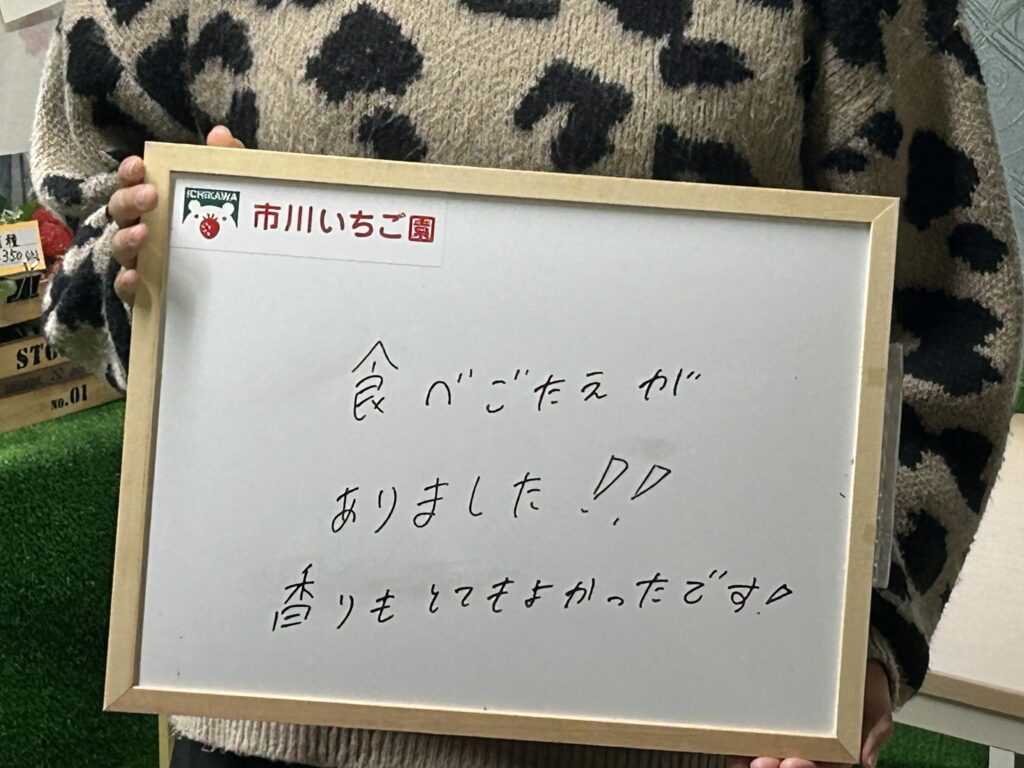 ICHIKAWA
市川いちご園
食べごたえが
ありました!!
香りもとてもよかったです!
種
350
STO
NO.01